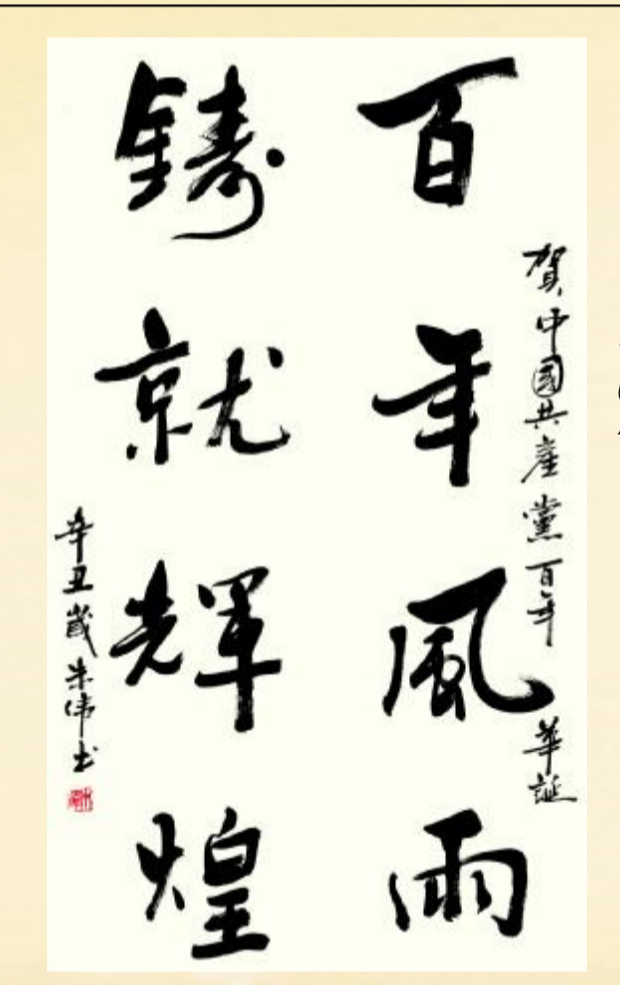 賀中國共產黨百年華誕
百年風雨
鑄就輝煌
辛丑歲朱偉书